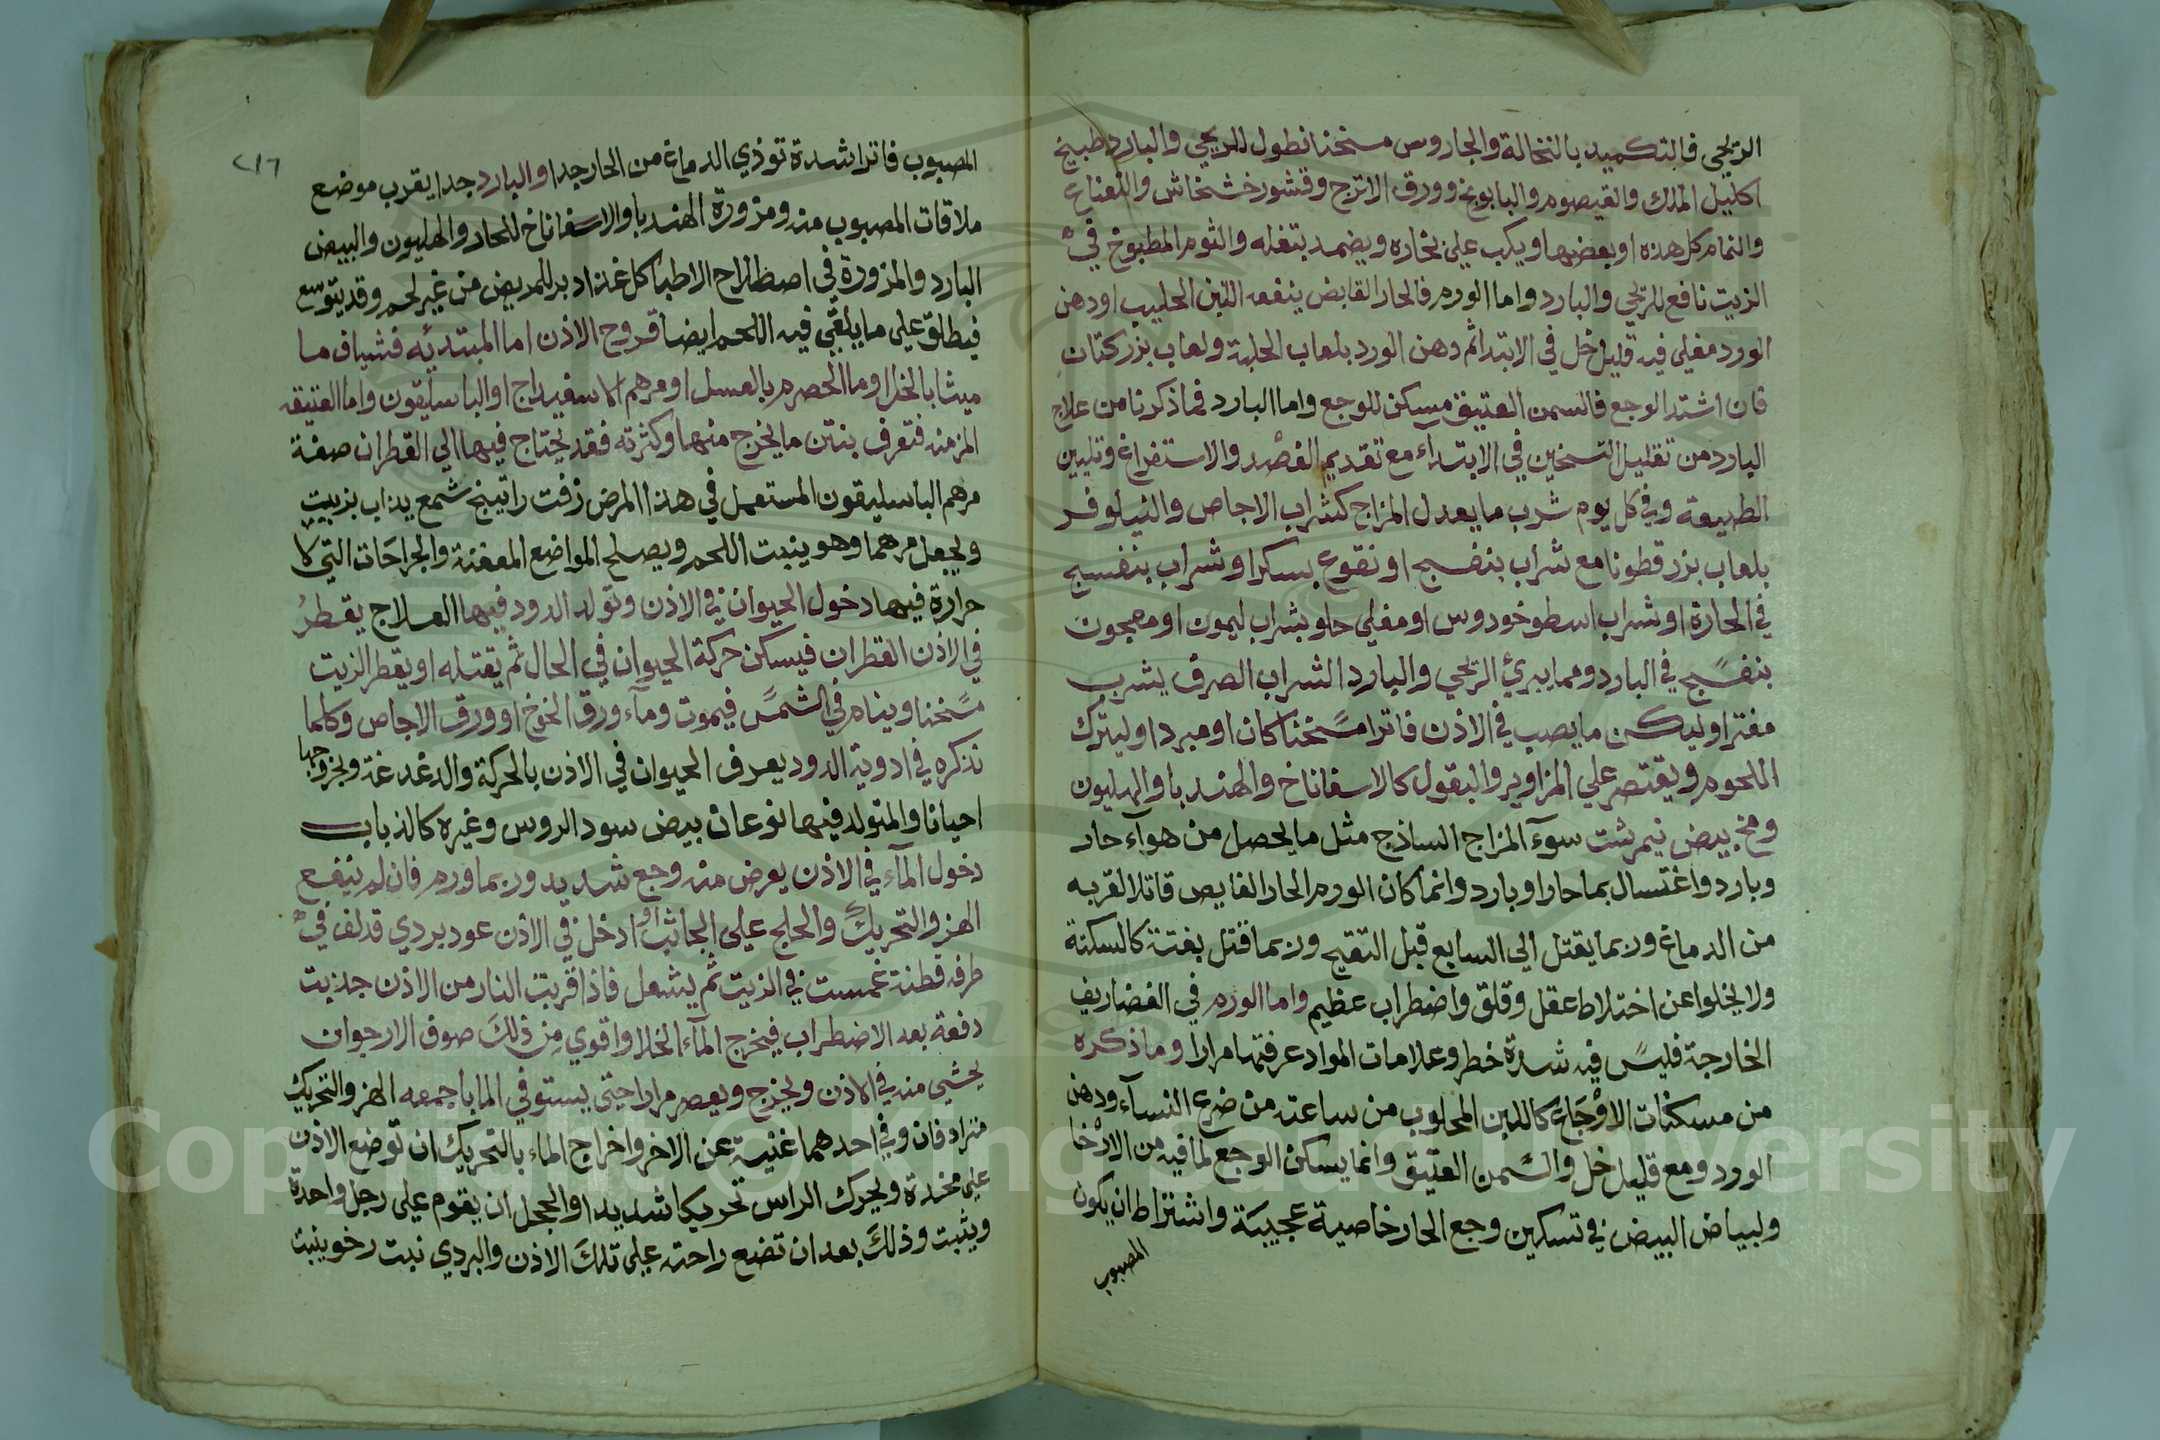 الريحي فبالتكميد بالنخالة والجاروس مسخنا نطول للريحي والبارد طبيخ
اكليل الملك والقيصوم والبابونج وورق الاترج وقشور خشخاش والنعناع
والنمام كل هذه او بعضها ويكب علي بخاره ويضمد بتفله والثوم المطبوخ في
الزيت نافع للريحي والبارد واما الورم فالحار القابض ينفعه التين الحليب اودهن
الورد مغلي فيه قليل خل في الابتدا ثم دهن الورد بلعاب الحلبة ولعاب بزر كتان
فان اشتد الوجع فالسمن العتيق مسكن للوجع واما البارد فما ذكرنا من علاج
البارد من تقليل التسخين في الابتداء مع تقديم الفصد والاستفراغ وتليين
الطبيعة وفي كل يوم شرب ما يعدل المزاج كشراب الاجاص والنيلوفر
بلعاب بزر قطونا مع شراب بنفسج او نقوع بسكر او شراب بنفسج
في الحارة او شراب اسطوخودوس او مغلي حلو بشراب ليمون او معجون
بنفسج في البارد ومما يبرئ الريحي والبارد الشراب الصرف يشرب
مفترا وليكن ما يصب في الاذن فاترا مسخنا كان او مبردا وليترك
اللحوم ويقتصر علي المزاوير والبقول كالاسفاناخ والهندبا والهليون
ومخ بيض نيمرشت سوء المزاج الساذج مثل ما يحصل من هواء حار
وبارد واغتسال بماحار او بارد وانما كان الورم الحار الغايص قاتلا لقربه
من الدماغ وربما يقتل الي السابع قبل التقيح وربما قتل بغتة كالسكتة
ولا يخلوا عن اختلاط عقل وقلق واضطراب عظيم واما الورم في الغضاريف
الخارجة فليس فيه شدة خطر وعلامات المواد عرفتها مرارا وما ذكره
من مسكنات الاوجاع كاللبن المحلوب من ساعته من ضرع النساء ودهن
الورد ومع قليل خل والسمن العتيق وانما يسكن الوجع لما فيه من الارخا
ولبياض البيض في تسكين وجع الحار خاصية عجيبة واشتراط ان يكون
المصبوب
٢١٦
المصبوب فاترا شدة توذي الدماغ من الحار جدا والبارد جدا يقرب موضع
ملاقات المصبوب منه ومزورة الهندبا والاسفاناخ للحار والهليون والبيض
البارد والمزورة في اصطلاح الاطبا كل غذا دبر للمريض من غير لحم وقد يتوسع
فيطلق علي ما يلقي فيه اللحم ايضا قروح الاذن اما المبتدئه فشياف ما
ميثا بالخل او ما الحصرم بالعسل او مرهم الاسفيداج او الباسليقون واما العتيقه
المزمنه فتعرف بنتن ما يخرج منها وكثرته فقد يحتاج فيها الي القطران صفة
مرهم الباسليقون المستعمل في هذا المرض زفت راتينج شمع يذاب بزيت
ويجعل مرهما وهو ينبت اللحم ويصلح المواضع المعفنة والجراحات التي لا
حرارة فيها دخول الحيوان في الاذن وتولد الدود فيها العلاج يقطر
في الاذن القطران فيسكن حركة الحيوان في الحال ثم يقتله او يقطر الزيت
مسخنا وينام في الشمس فيموت وماء ورق الخوخ او ورق الاجاص وكلما
نذكره في ادوية الدود يعرف الحيوان في الاذن بالحركة والدغدغة وبخروجها
احيانا والمتولد فيها نوعان بيض سود الروس وغيره كالذباب
دخول الماء في الاذن يعرض منه وجع شديد وربما ورم فان لم ينفع
الهز والتحريك والحلج علي الجانب او ادخل في الاذن عود بردي قد لف في
طرفه قطنة غمست في الزيت ثم يشعل فاذا قربت النار من الاذن جذبت
دفعة بعد الاضطراب فيخرج الماء الخلا واقوي من ذلك صوف الارجوان
يحشي منه في الاذن ويخرج ويعصر مرارا حتي يستوفي الما باجمعه الهز والتحريك
متراد فان وفي احدهما غنية عن الاخر واخراج الماء بالتحريك ان توضع الاذن
علي مخدة ويحرك الراس تحريكا شديدا والحجل ان يقوم علي رجل واحدة
ويثبت وذلك بعد ان تضع راحته علي تلك الاذن والبردي نبت رخو ينبت
Copyright © King Saud University